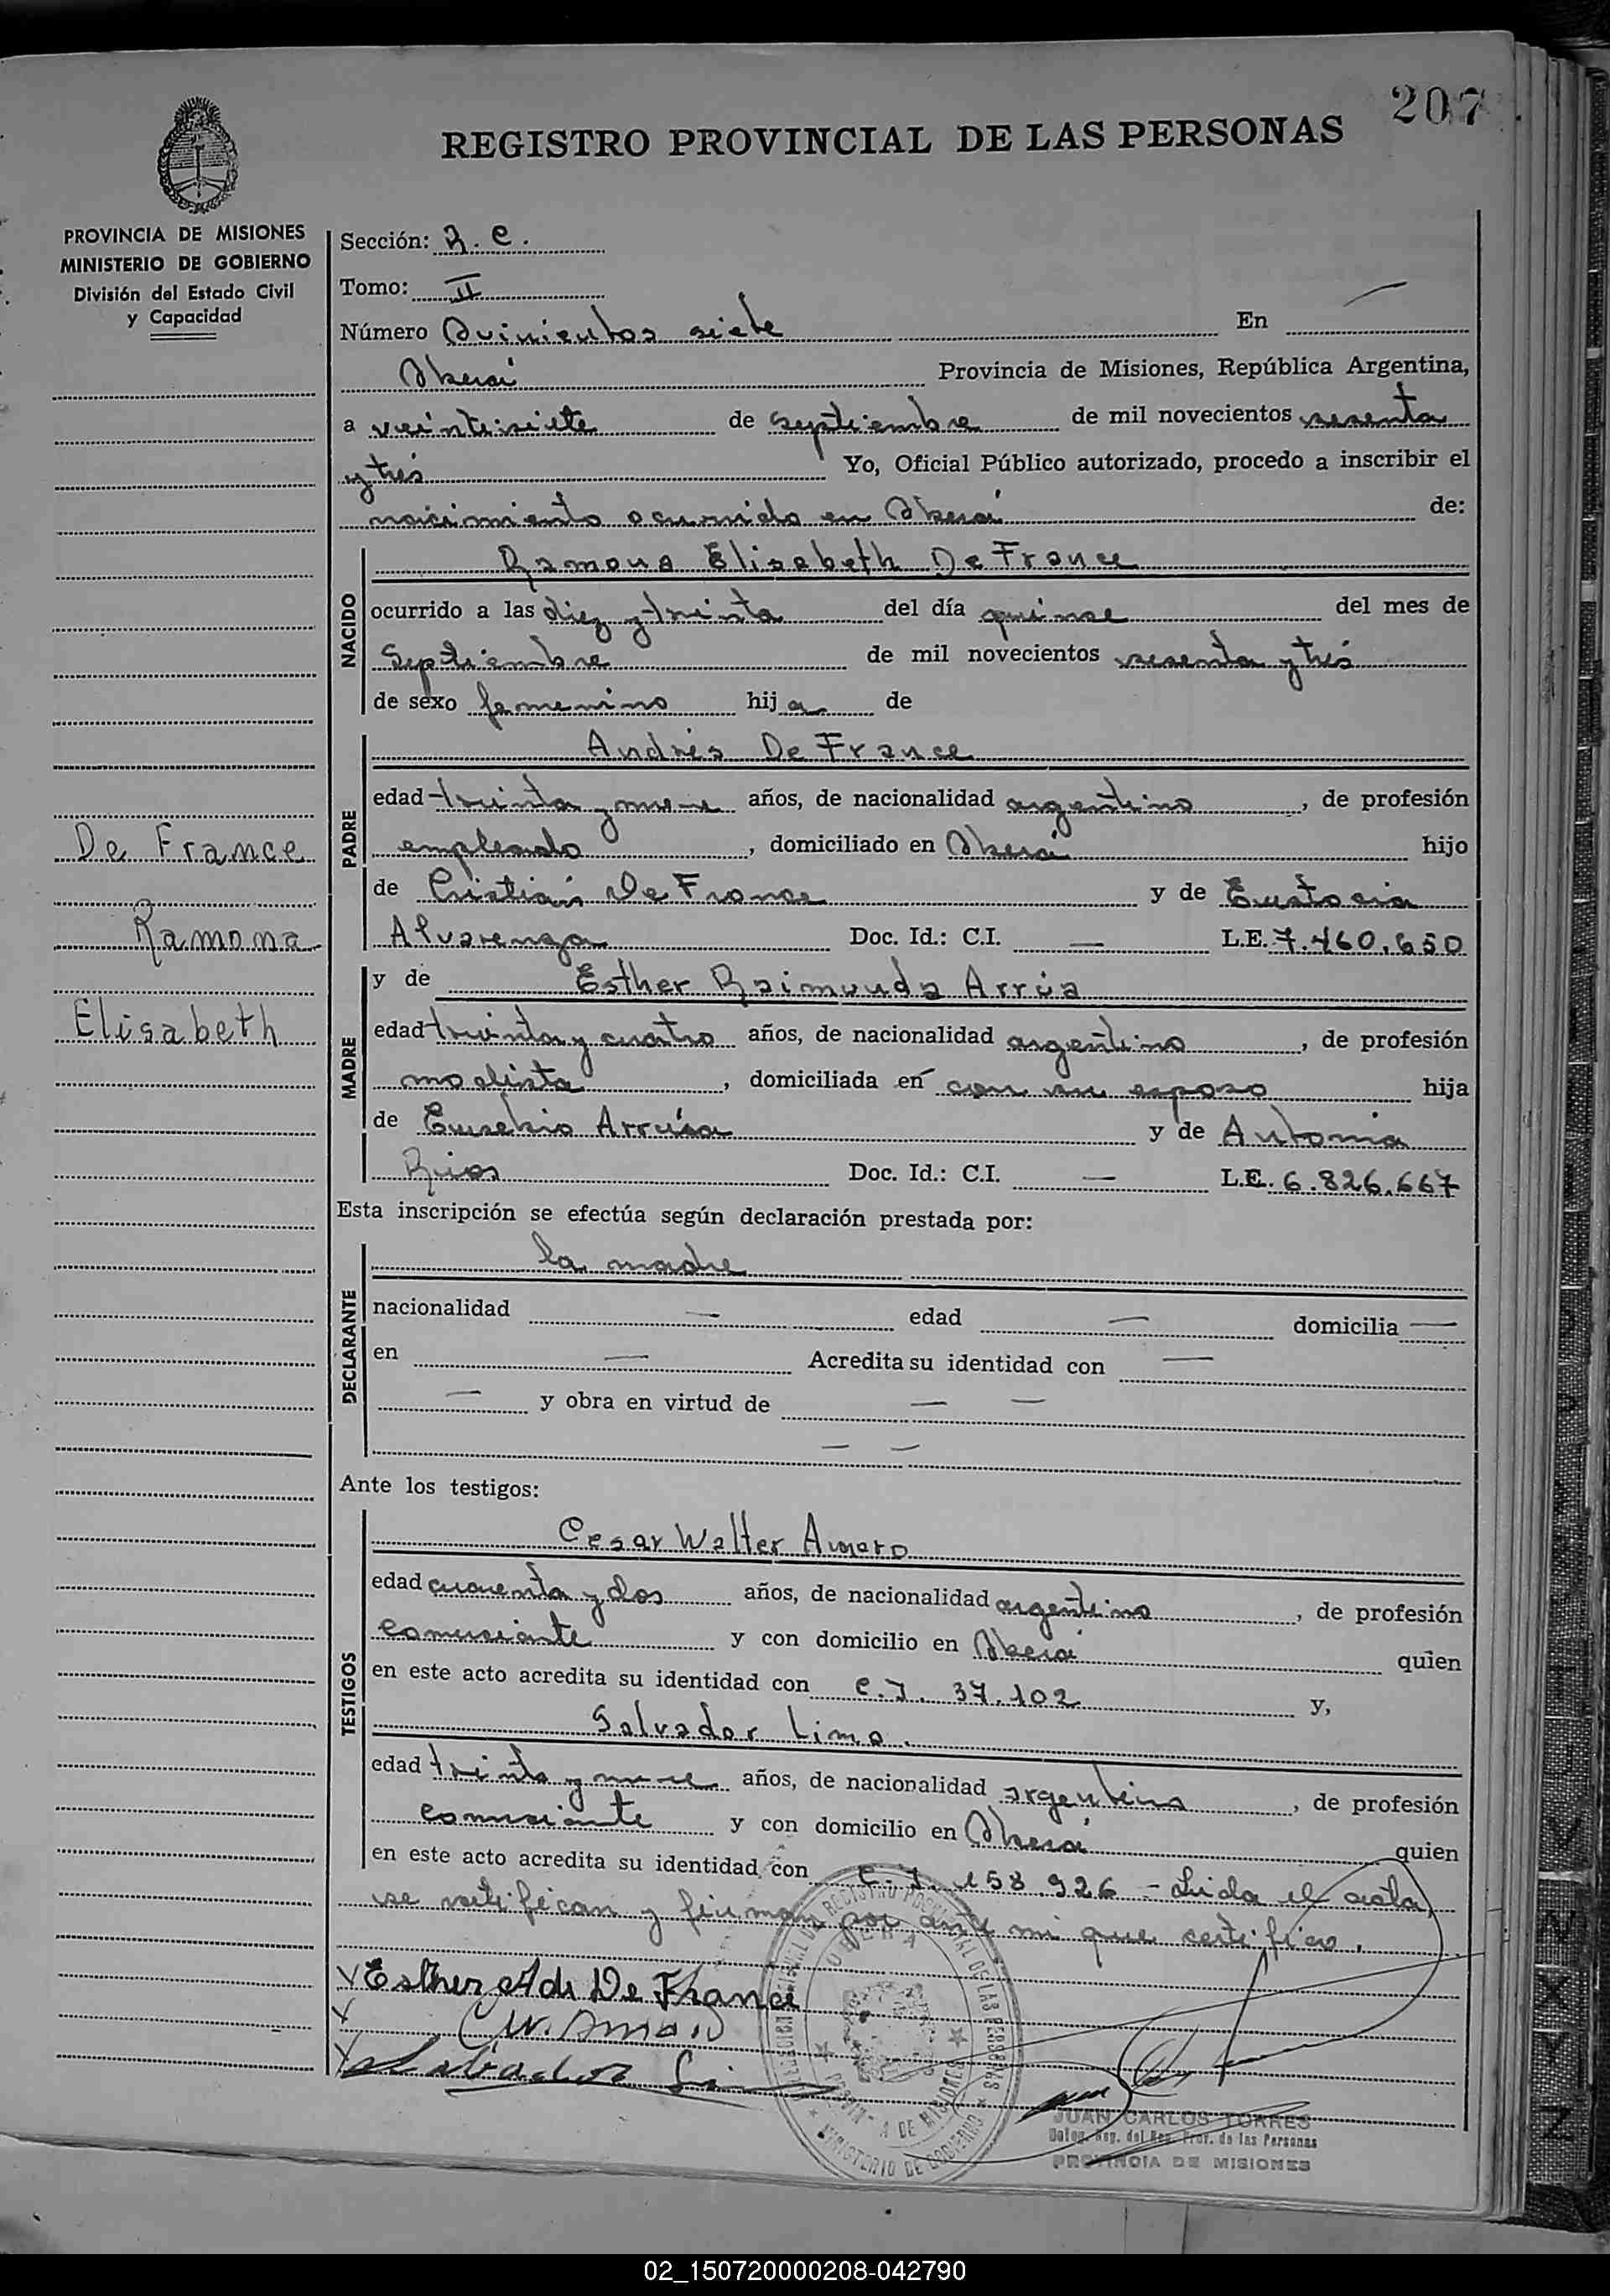 207
REGISTRO PROVINCIAL DE LAS PERSONAS
PROVINCIA DE MISIONES
MINISTERIO DE GOBIERNO
División del Estado Civil
y Capacidad
De France
Ramona
Elisabeth
Sección: R. C.
Tomo: II
Número Quinientos siete En —
Oberá Provincia de Misiones, República Argentina,
a veintisiete de septiembre de mil novecientos sesenta
y trés Yo, Oficial Público autorizado, procedo a inscribir el
nacimiento ocurrido en Oberá de:
NACIDO
Ramona Elisabeth De France
ocurrido a las diez y treinta del día quince del mes de
Septiembre de mil novecientos sesenta y trés
de sexo femenino hija de
PADRE
Andrés De France
edad treinta y nueve años, de nacionalidad argentino, de profesión
empleado, domiciliado en Oberá hijo
de Cristián De France y de Eustocia
Alvarenga Doc. Id.: C.I. — L.E. 7.460.650
MADRE
y de Esther Raimunda Arrúa
edad treinta y cuatro años, de nacionalidad argentina, de profesión
modista, domiciliada en con su esposo hija
de Eusebio Arrúa y de Antonia
Rios Doc. Id.: C.I. — L.E. 6.826.667
Esta inscripción se efectúa según declaración prestada por:
DECLARANTE
la madre
nacionalidad — edad — domicilia —
en — Acredita su identidad con —
— y obra en virtud de — —
— —
Ante los testigos:
TESTIGOS
Cesar Walter Amaro
edad cuarenta y dos años, de nacionalidad argentino, de profesión
comerciante y con domicilio en Oberá quien
en este acto acredita su identidad con C.I. 37.102 y,
Salvador Lima
edad treinta y nueve años, de nacionalidad argentino, de profesión
comerciante y con domicilio en Oberá quien
en este acto acredita su identidad con C.I. 158.926 - Leida el acta,
se ratifican y firman por ante mi que certifico.
Esther A de De France
W. Amaro
Salvador Lima
OBERA
MINISTERIO DE GOBIERNO
JUAN CARLOS TORRES
Deleg. Reg. del Reg. Prov. de las Personas
PROVINCIA DE MISIONES
02_150720000208-042790